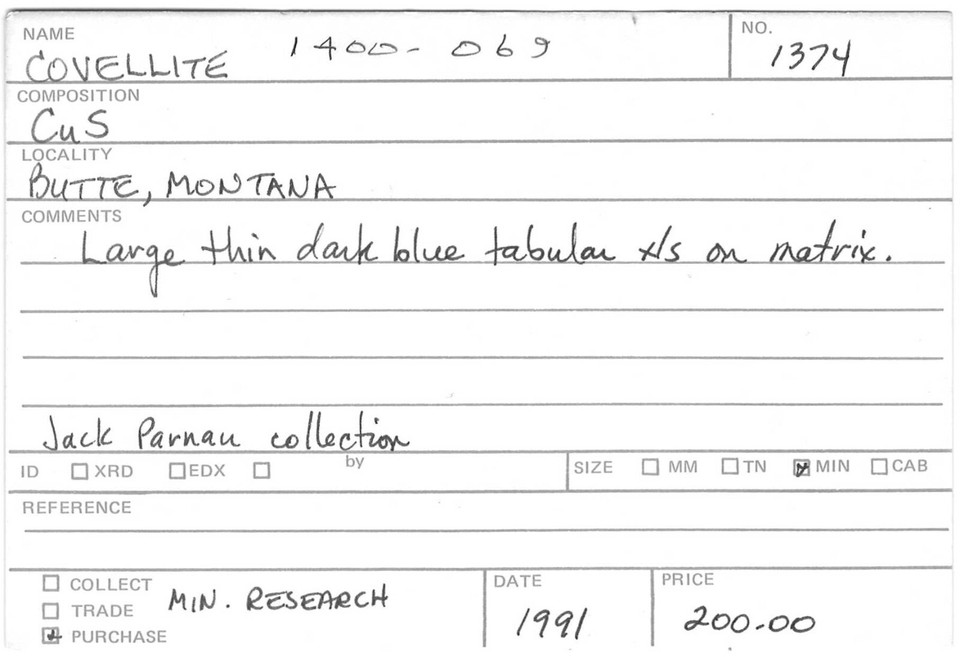 NAME
COVELLITE 1400-069
NO.
1374
COMPOSITION
CuS
LOCALITY
BUTTE, MONTANA
COMMENTS
Large thin dark blue tabular xls on matrix.
Jack Parnau collection
ID XRD EDX by SIZE MM TN MIN CAB
REFERENCE
COLLECT
TRADE MIN. RESEARCH
PURCHASE
DATE
1991
PRICE
200.00